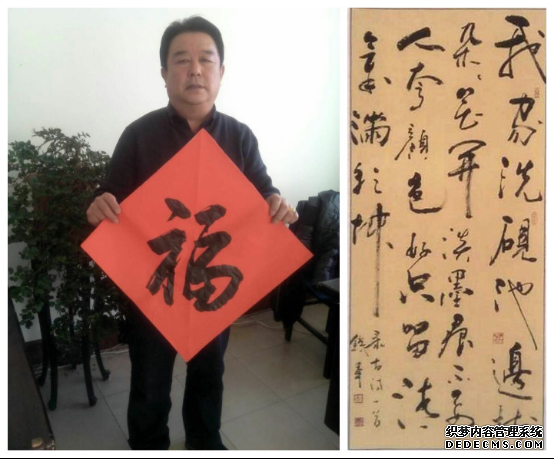 福
我家洗硯池邊樹
朵〻花開淡墨痕不要
人夸顏色好只留清
氣滿乾坤
录古诗一首
织梦内容管理系统
DEDECMS.COM